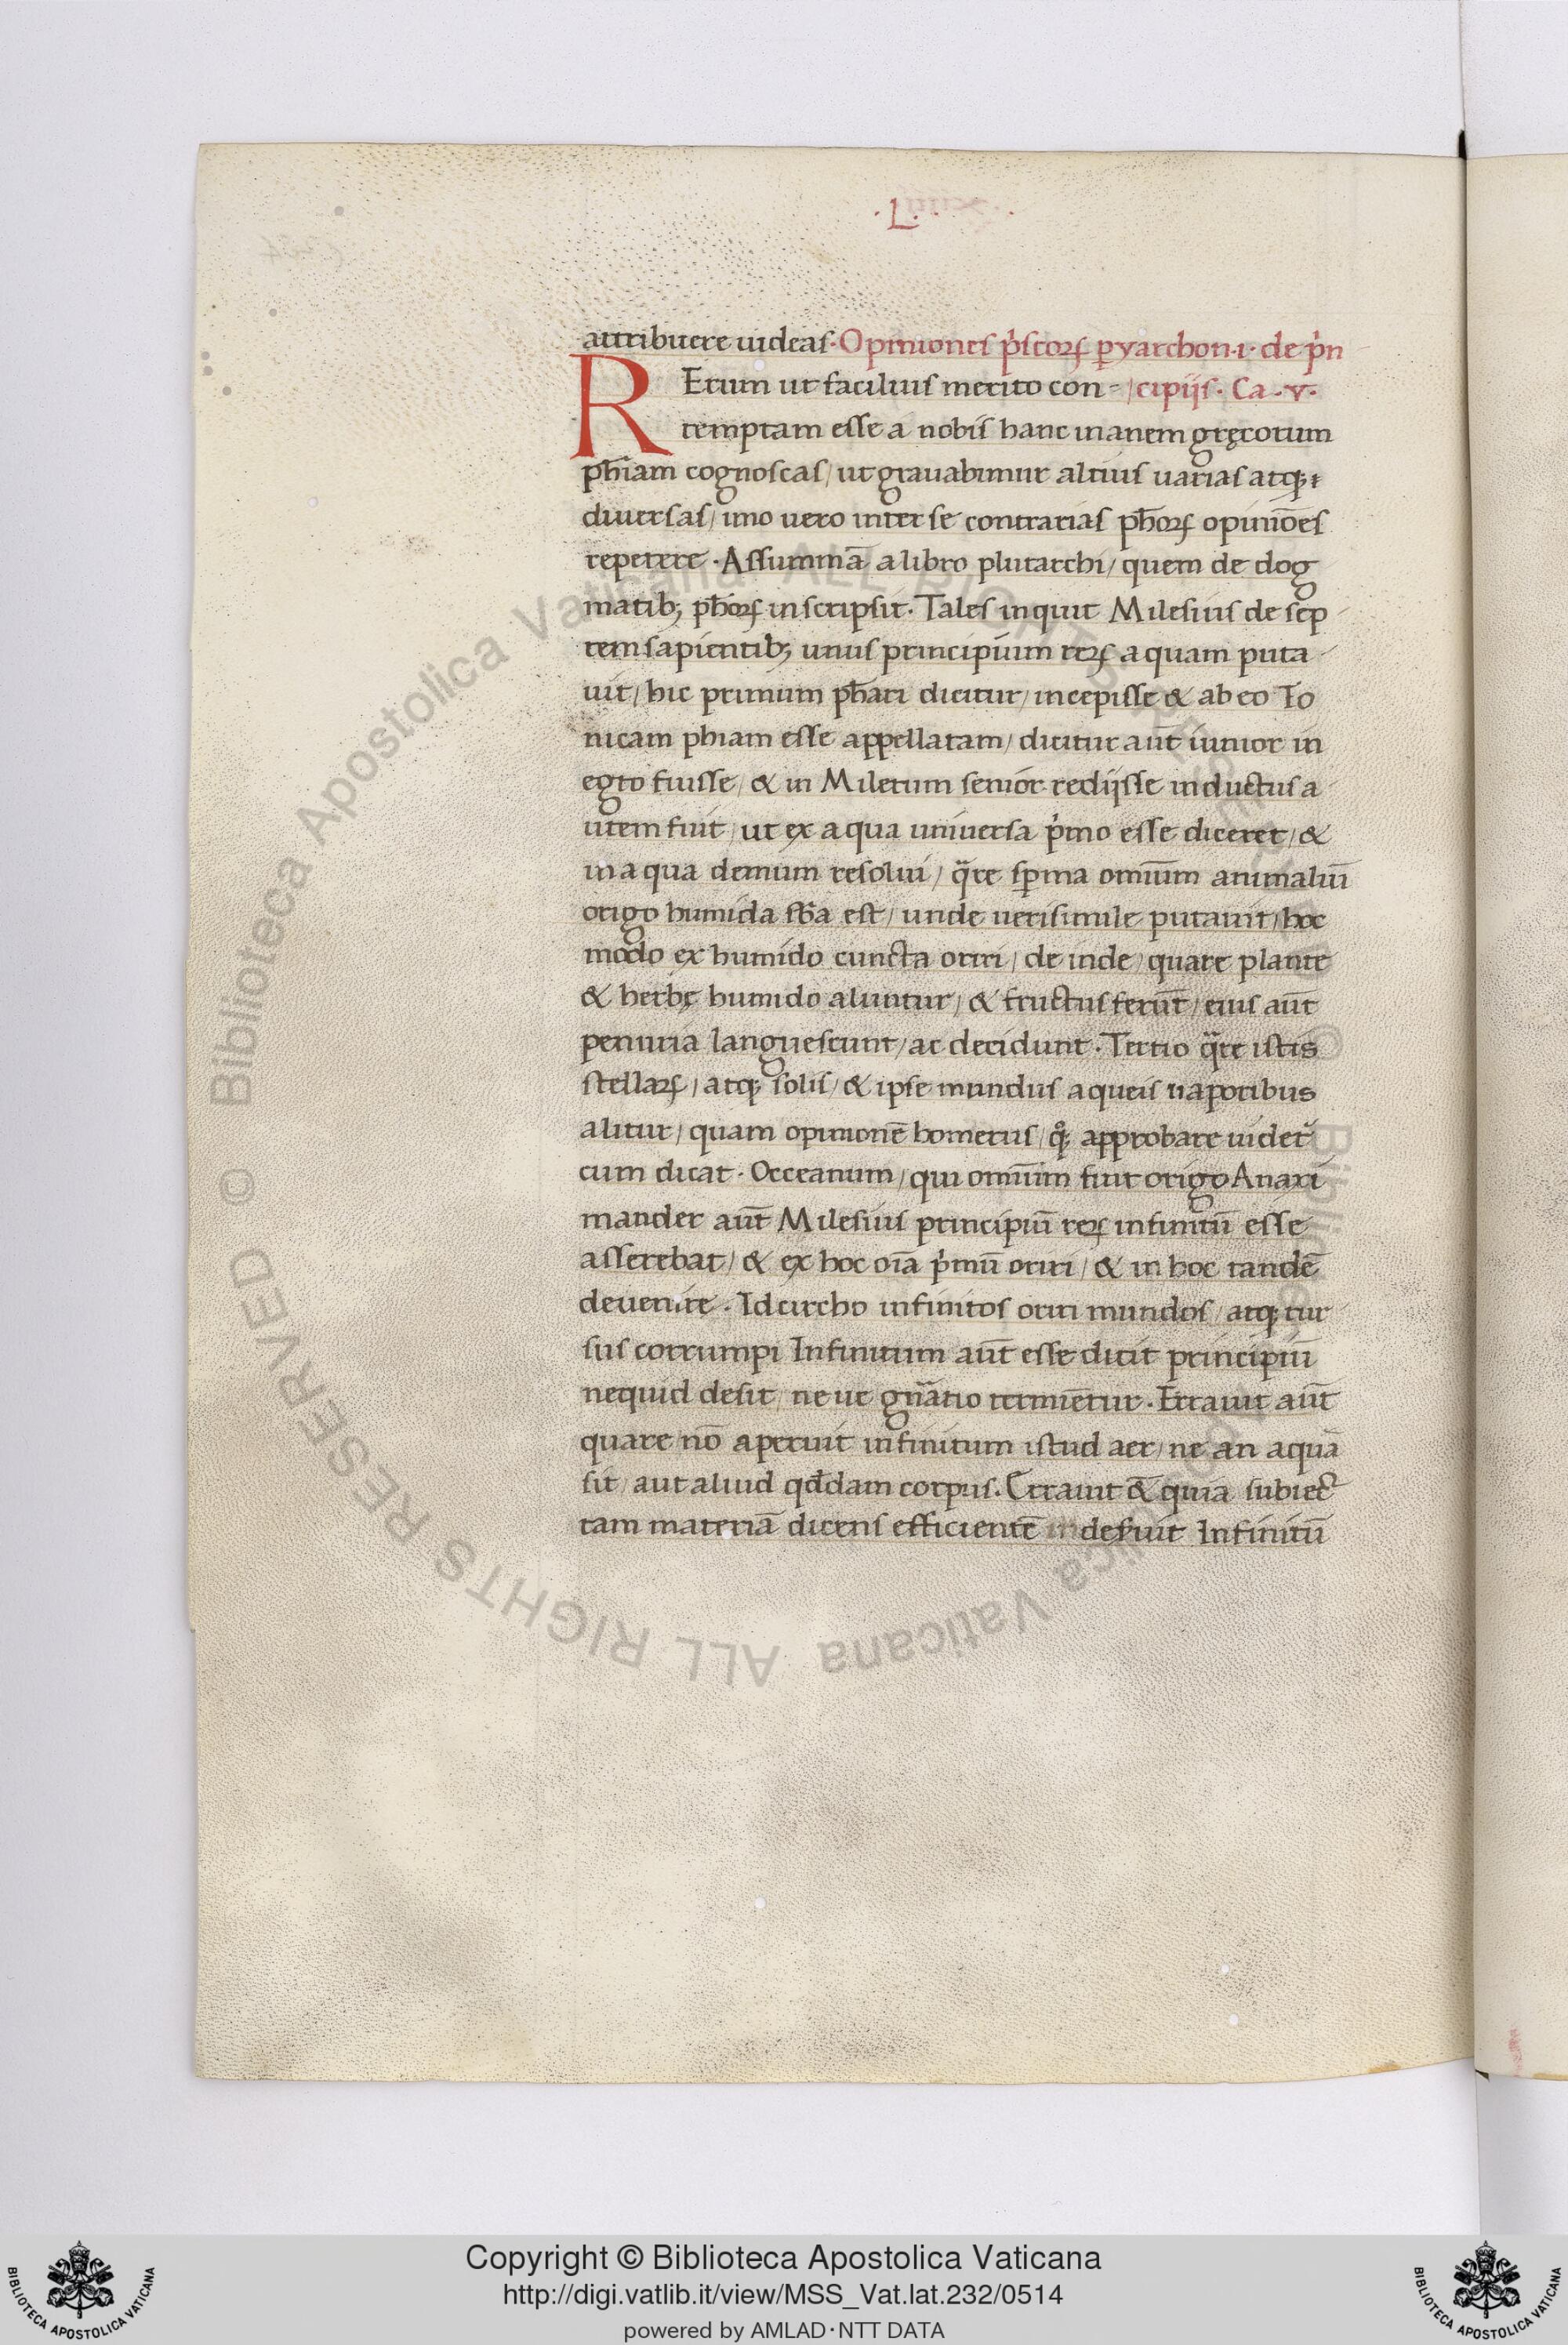 ·L·
attribuere uideas· Opiniones p̓scoꝝ ꝑyarchon·i· de p̓n
REtum ut facilius merito con- /cipijs· Ca·v·
temptam esse a nobis hanc inanem gręcorum
ph̄iam cognoscas/ ut grauabimur altius uarias atqꝫ
diuersas/ imo uero inter se contrarias ph̄oꝝ opiniōes
repetere · Assummā a libro plutarchi/ quem de dog
matibꝫ ph̄oꝝ inscripsit· Tales inquit Milesius de sep
tem sapientibꝫ unus principium reꝝ aquam puta
uit/ hic primum ph̄ari dicitur/ incepisse & ab eo Io
nicam phiam esse appellatam/ dicitur aūt iunior in
egto fuisse/ & in Miletum senior redijsse inductus a
utem fuit/ ut ex aqua uniuersa p̓mo esse diceret/ &
in aqua demum resolui/ q̄re sꝑma omīum animaliū
origo humida sb̄a est/ unde uerisimile putauit/ hoc
modo ex humido cuncta oriri/ de inde/ quare plante
& herbę humido aluntur/ & fructus ferūt/ eius aūt
penuria languescunt/ ac decidunt· Tertio q̄re istis
stellaꝝ/ atqꝫ solis/ & ipse mundus aqueis uaporibus
alitur/ quam opinionē homerus/ qͦqꝫ approbare uidet̓
cum dicat· Occeanum/ qui omīum fuit origo Anaxi
mander aūt Milesius principiū reꝝ infinitū esse
asserebat/ & ex hoc oīa p̓mū oriri/ & in hoc tandē
deuenire· Idcircho infinitos oriri mundos/ atqꝫ rur
sus corrumpi Infinitum aūt esse dicit principiū
nequid desit/ ne ue gn̄atio termiētur· Errauit aūt
quare nō aperuit infinitum istud aer/ ne an aqua
sit/ aut aliud qd̄dam corpus· Errauit &̄ quia subiec
tam materiā dicens efficientē in defuit Infinitū
Copyright © Biblioteca Apostolica Vaticana
http://digi.vatlib.it/view/MSS_Vat.lat.232/0514
powered by AMLAD·NTT DATA
BIBLIOTECA APOSTOLICA VATICANA
BIBLIOTECA APOSTOLICA VATICANA
© Biblioteca Apostolica Vaticana ALL RIGHTS RESERVED © Biblioteca Apostolica Vaticana ALL RIGHTS RESERVED